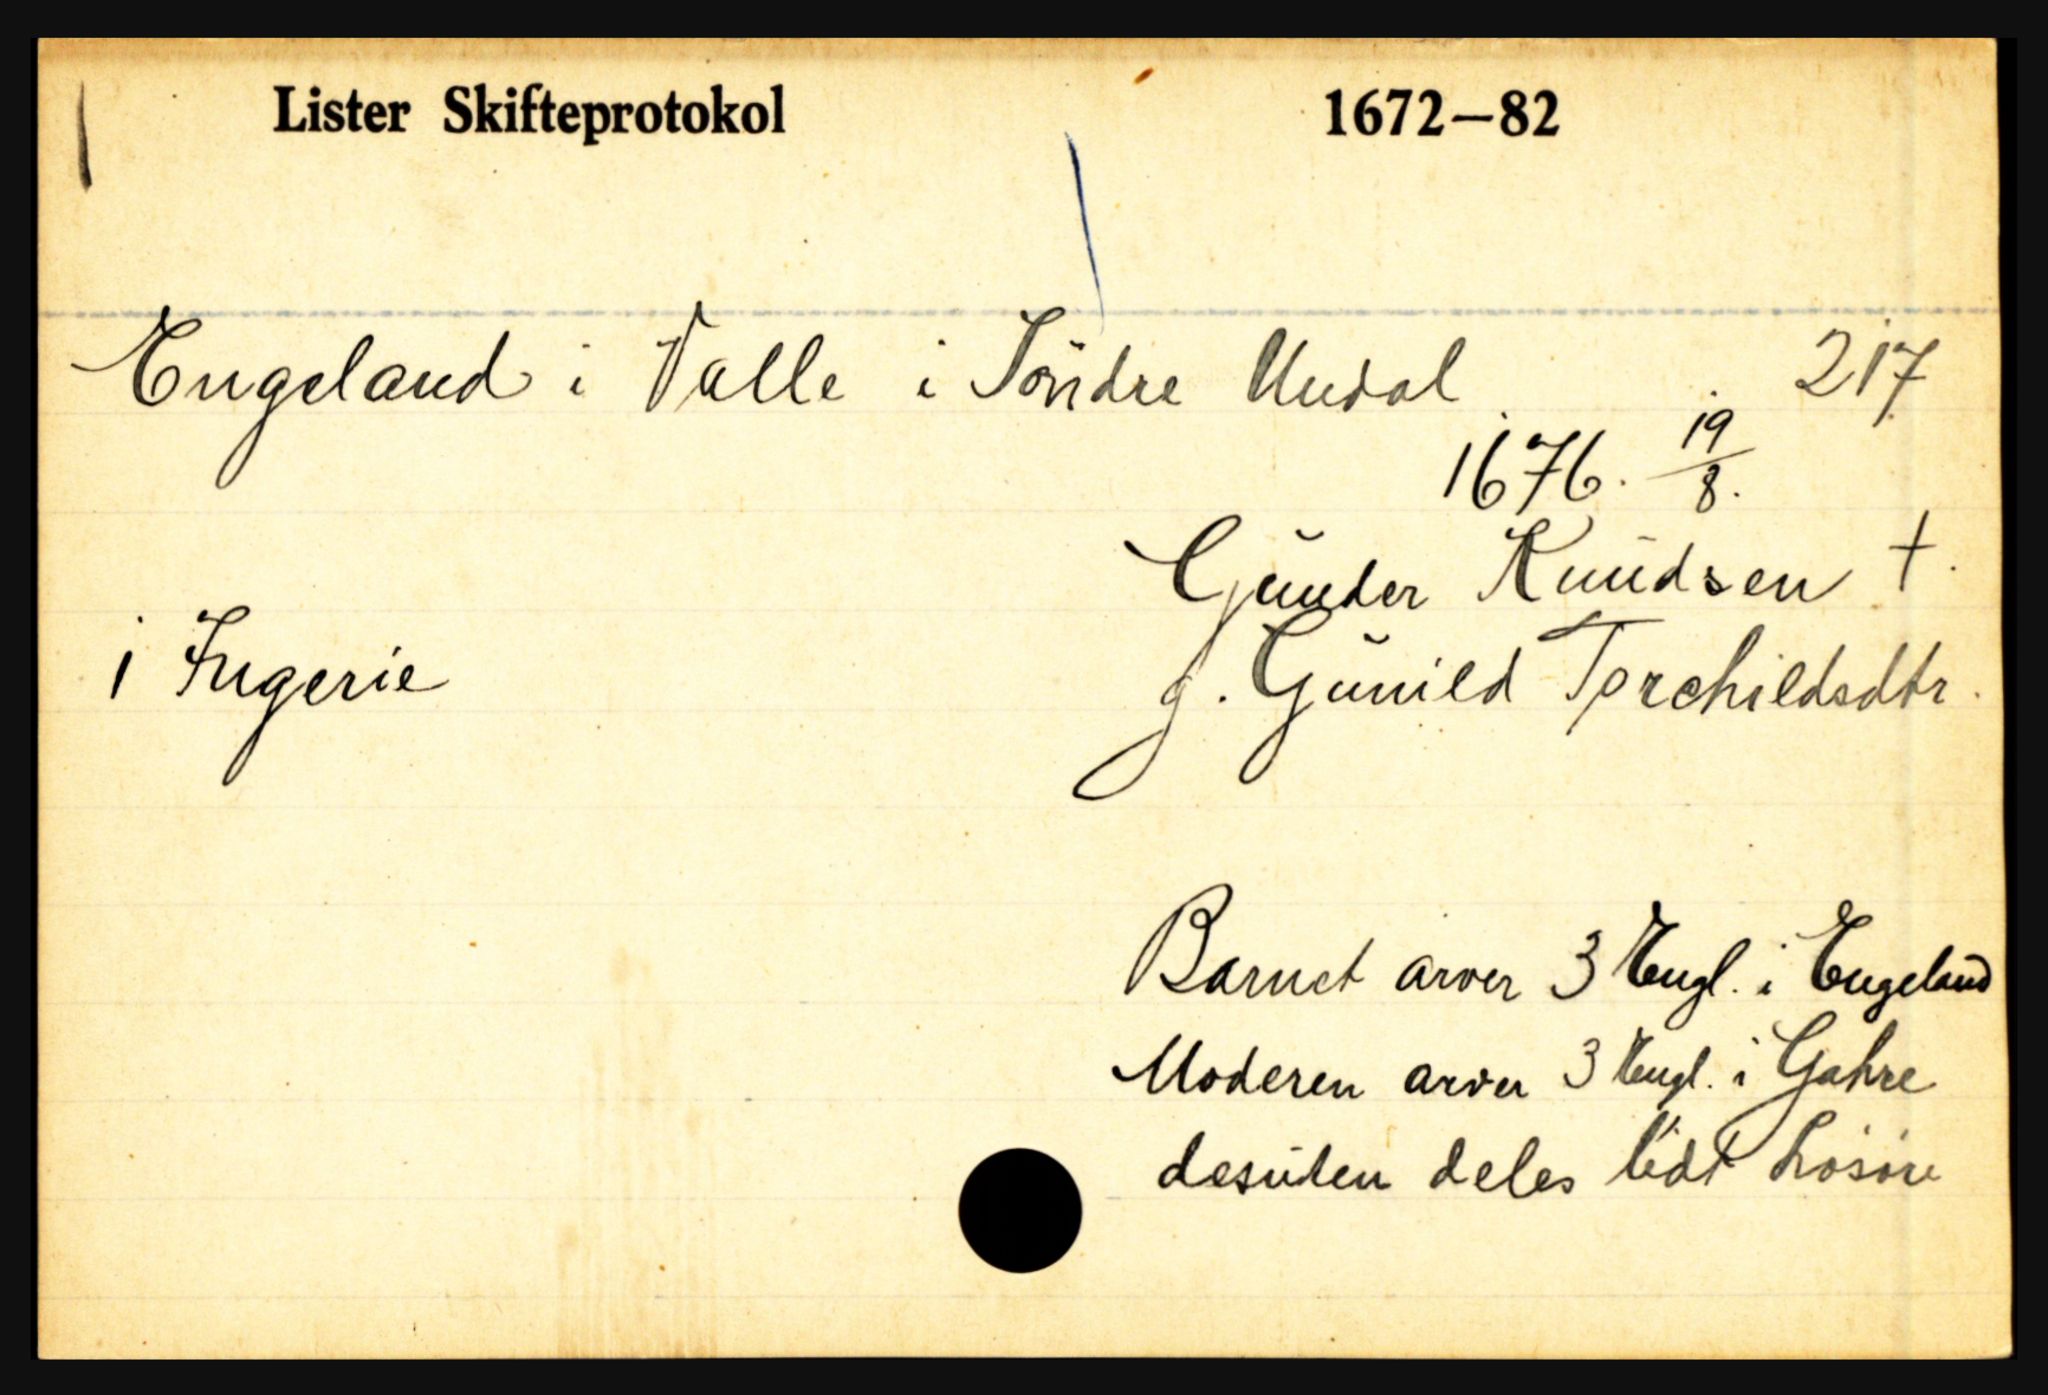 Lister Skifteprotokol 1672—82
Engeland i Valle i Söndre Undal 217
1676. 19/8.
Gŭnder Knŭdsen †.
1 Ingerie g. Gŭnild Torchildsdtr.
Barnet arver 3 Engl. i Engeland
Moderen arver 3 Engl. i Gahre
desŭten deles lidt Lösöre